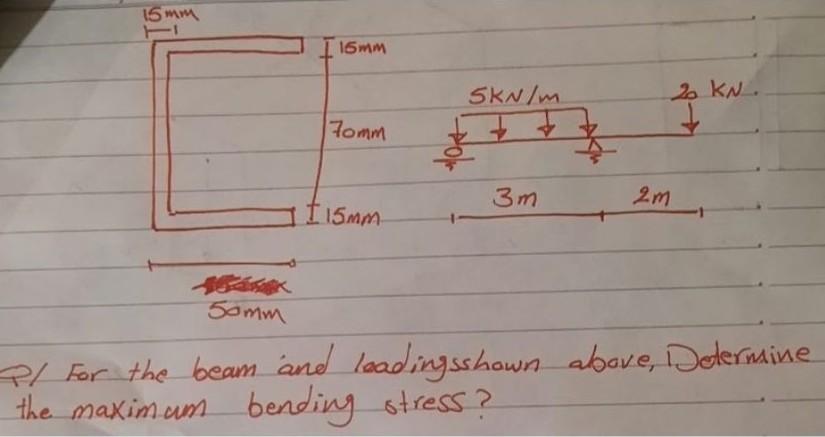 15mm
15mm
5KN/m
20 KN
70mm
3m
2m
15mm
50mm
Q/ For the beam and loadingsshown above, Determine
the maximum bending stress?